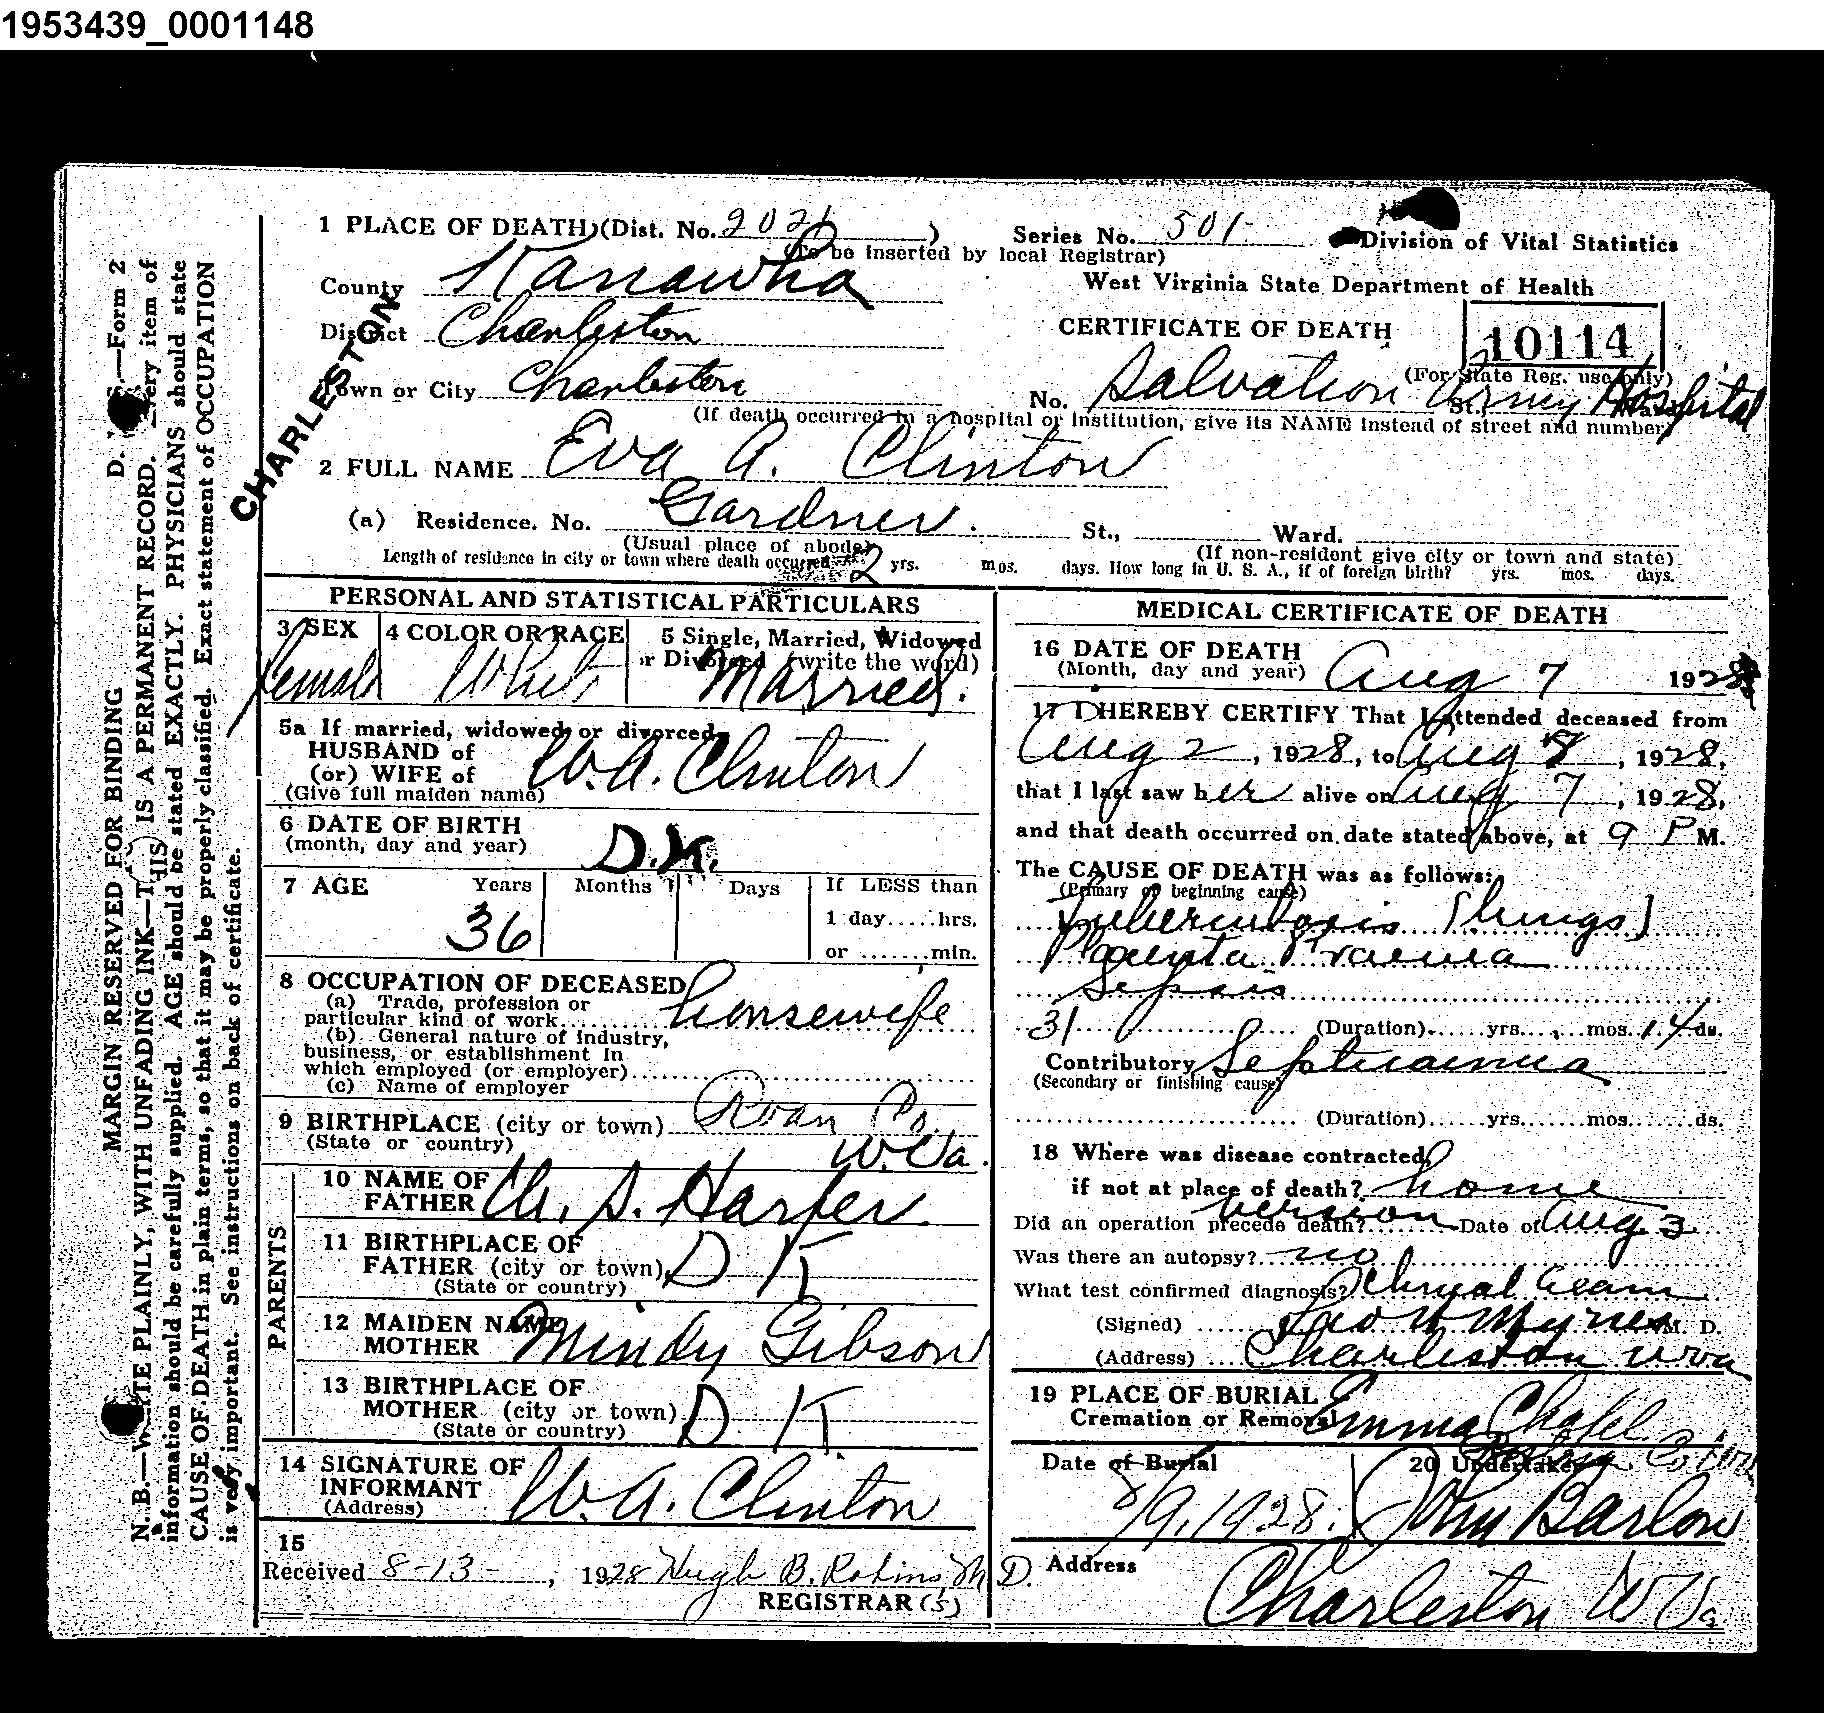 1953439_0001148
1 PLACE OF DEATH (Dist. No. 2021) Series No. 501- Division of Vital Statistics
(To be inserted by local Registrar)
County Kanawha West Virginia State Department of Health
District Charleston CERTIFICATE OF DEATH 10114
CHARLESTON
(For State Reg. use only)
Town or City Charleston No. Salvation Army Hospital St.,
(If death occurred in a hospital or institution, give its NAME instead of street and number)
2 FULL NAME Eva A. Clinton
(a) Residence. No. Gardner. St., Ward.
(Usual place of abode) (If non-resident give city or town and state)
Length of residence in city or town where death occurred 2 yrs. mos. days. How long in U. S. A., if of foreign birth? yrs. mos. days.
PERSONAL AND STATISTICAL PARTICULARS
3 SEX 4 COLOR OR RACE 5 Single, Married, Widowed
or Divorced (write the word)
Female White Married.
5a If married, widowed, or divorced
HUSBAND of
(or) WIFE of W.A. Clinton
(Give full maiden name)
6 DATE OF BIRTH
(month, day and year) D.K.
7 AGE Years Months Days If LESS than
36 1 day.....hrs.
or .......min.
8 OCCUPATION OF DECEASED
(a) Trade, profession or
particular kind of work housewife
(b) General nature of industry,
business, or establishment in
which employed (or employer)
(c) Name of employer
9 BIRTHPLACE (city or town) Roan Co.
(State or country) W.Va.
PARENTS
10 NAME OF
FATHER S. Harper
11 BIRTHPLACE OF
FATHER (city or town) D K
(State or country)
12 MAIDEN NAME
MOTHER Mindy Gibson
13 BIRTHPLACE OF
MOTHER (city or town) D K
(State or country)
14 SIGNATURE OF
INFORMANT W.A. Clinton
(Address)
15
Received 8-13-, 1928 Hugh B. Robins, M D.
REGISTRAR (S)
MEDICAL CERTIFICATE OF DEATH
16 DATE OF DEATH
(Month, day and year) Aug 7 1928
17 I HEREBY CERTIFY That I attended deceased from
Aug 2, 1928, to Aug 8, 1928,
that I last saw her alive on Aug 7, 1928,
and that death occurred on date stated above, at 9 P M.
The CAUSE OF DEATH was as follows:
(Primary or beginning cause)
Tuberculosis [lungs]
Placenta Praevia
Sepsis
31 (Duration)......yrs......mos. 14 ds.
Contributory Septicaemia
(Secondary or finishing cause)
(Duration)......yrs.......mos.......ds.
18 Where was disease contracted
if not at place of death? home
Did an operation precede death? Version Date of Aug 3
Was there an autopsy? no
What test confirmed diagnosis? Clinical Exam
(Signed) M. D.
(Address) Charleston W Va
19 PLACE OF BURIAL
Cremation or Removal Emma Chapel
Date of Burial 20 Undertaker
8/9, 1928. John Barlow
Address
Charleston W Va
D. S.—Form 2
MARGIN RESERVED FOR BINDING
N. B.—WRITE PLAINLY, WITH UNFADING INK—THIS IS A PERMANENT RECORD. Every item of
information should be carefully supplied. AGE should be stated EXACTLY. PHYSICIANS should state
CAUSE OF DEATH in plain terms, so that it may be properly classified. Exact statement of OCCUPATION
is very important. See instructions on back of certificate.